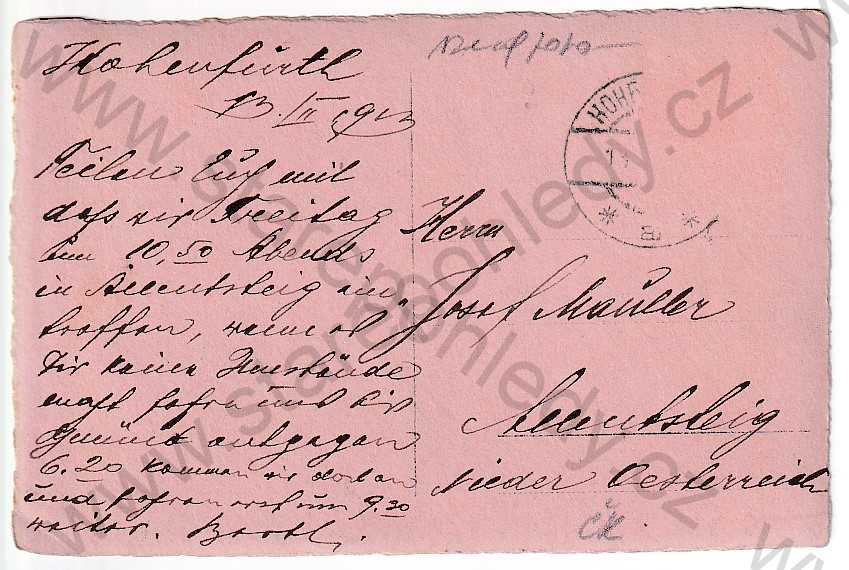 Hohenfurth
13. IV 1913
Teilen Euch mit
dass wir Freitag
um 10,50 Abends
in Allentsteig ein
treffen, wenn es
Dir keine Umstände
macht fahre uns bis
Gmünd entgegen
6.20 kommen wir dort an
und fahren erst um 9.20
weiter. Bertl.
Herrn
Josef Maüller
Allentsteig
Nieder Oesterreich
HOHE
čk
www.staropohledy.cz